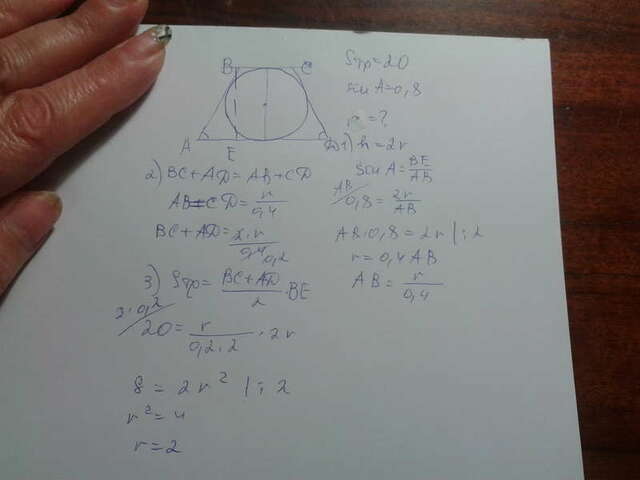 B C
A E D
Sтр=20
sin A=0,8
r=?
1) h=2r
sin A=BE/AB
AB/ 0,8=2r/AB
AB·0,8=2r |:2
r=0,4AB
AB=r/0,4
2) BC+AD=AB+CD
AB=CD=r/0,4
BC+AD=2·r/0,4 0,2
3) Sтр=BC+AD/2·BE
2·0,2/ 20=r/0,2·2·2r
8=2r² |:2
r²=4
r=2